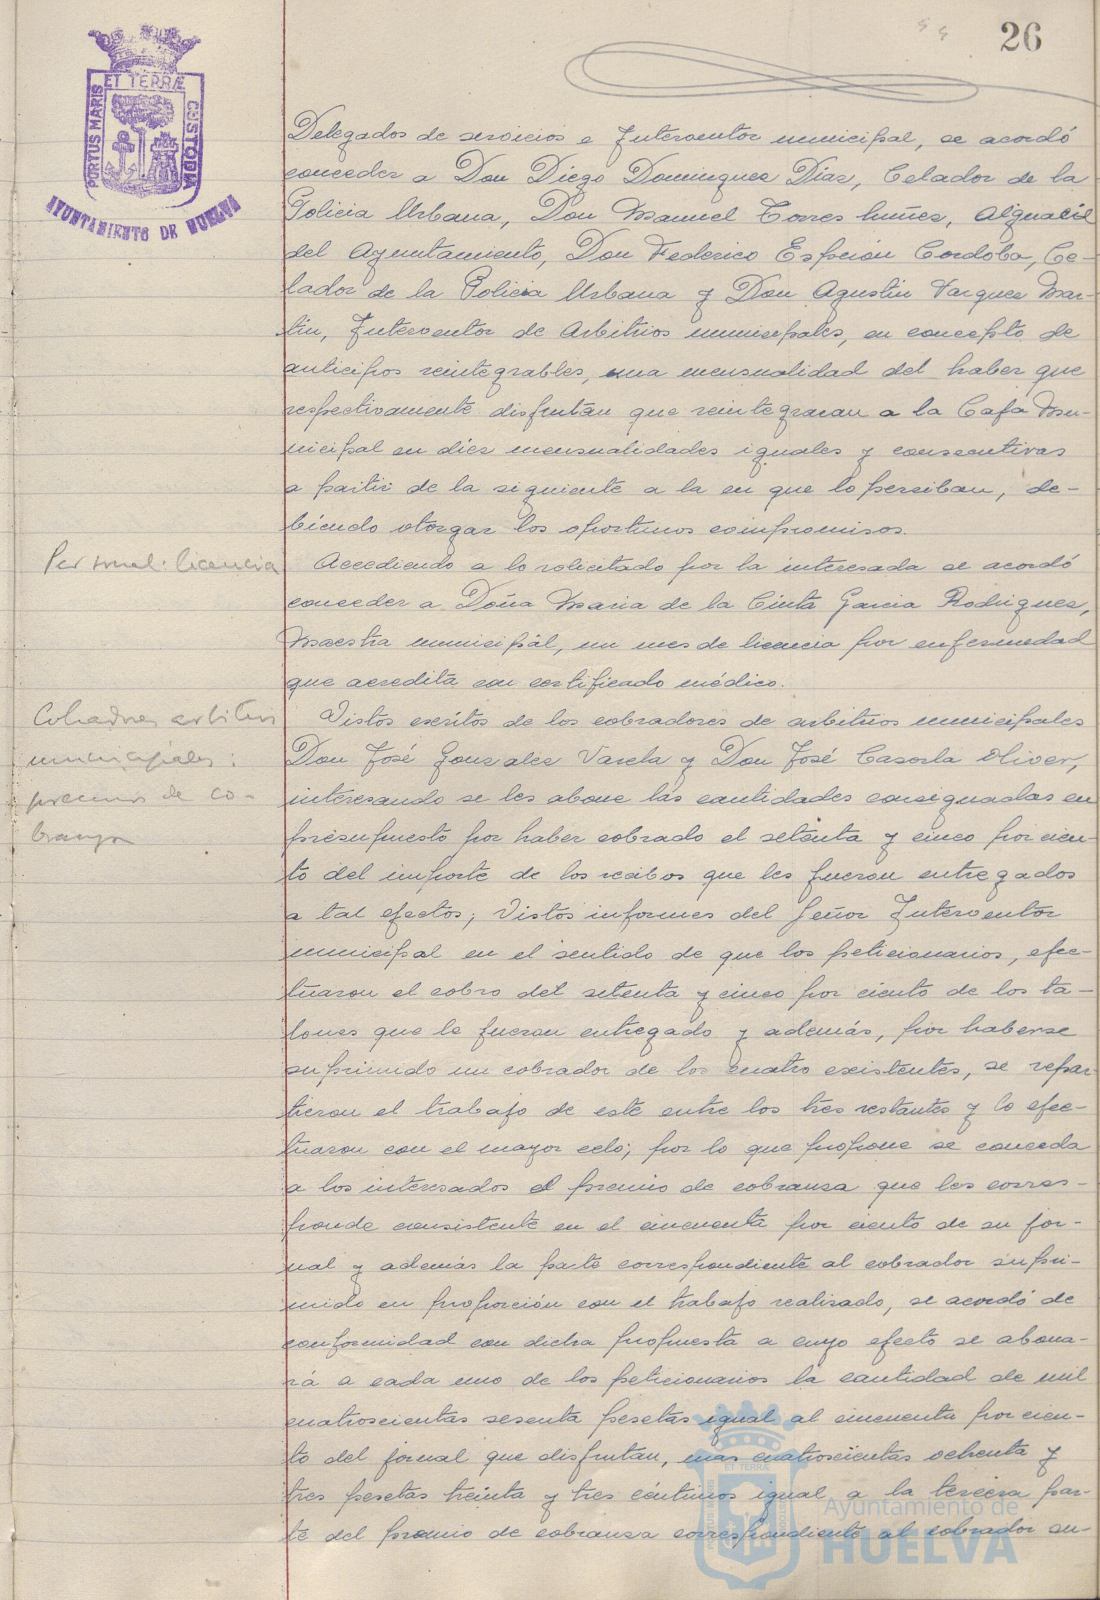 26
ET TERRÆ
PORTUS MARIS
CUSTODIA
AYUNTAMIENTO DE HUELVA
Delegados de servicios e Interventor municipal, se acordó
conceder a Don Diego Dominguez Diaz, Celador de la
Policia Urbana, Don Manuel Torres Nuñez, Alguacil
del Ayuntamiento, Don Federico Espción Cordóba, Ce-
lador de la Policia Urbana y Don Agustin Vazquez Mar-
tin, Interventor de Arbitrios municipales, en concepto de
anticipos reintegrables, una mensualidad del haber que
respectivamente disfrutan que reintegraran a la Caja Mu-
nicipal en diez mensualidades iguales y consecutivas
a partir de la siguiente a la en que lo perciban, de-
biendo otorgar los oportunos compromisos.
Personal: licencia
Accediendo a lo solicitado por la interesada se acordó
conceder a Doña Maria de la Cinta Garcia Rodriguez,
Maestra municipal, un mes de licencia por enfermedad
que acredita con certificado médico.
Cobradores arbitrios
municipales:
premios de co-
branza
Vistos escritos de los cobradores de arbitrios municipales
Don José Gonzalez Varela y Don José Casorla Oliver,
interesando se les abone las cantidades consignadas en
presupuesto por haber cobrado el setenta y cinco por cien-
to del importe de los recibos que les fueron entregados
a tal efectos; Vistos informes del Señor Interventor
municipal en el sentido de que los peticionarios, efec-
tuaron el cobro del setenta y cinco por ciento de los ta-
lones que le fueron entregado y además, por haberse
suprimido un cobrador de los cuatro existentes, se repar-
tieron el trabajo de este entre los tres restantes y lo efec-
tuaron con el mayor celo; por lo que propone se conceda
a los interesados el premio de cobranza que les corres-
ponde consistente en el cincuenta por ciento de su jor-
nal y además la parte correspondiente al cobrador supri-
mido en proporción con el trabajo realizado, se acordó de
conformidad con dicha propuesta a cuyo efecto se abona-
rá a cada uno de los peticionarios la cantidad de mil
cuatroscientas sesenta pesetas igual al cincuenta por cien-
to del jornal que disfrutan, mas cuatroscientas ochenta y
tres pesetas treinta y tres céntimos igual a la tercera par-
te del premio de cobranza correspondiente al cobrador su-
Ayuntamiento de
HUELVA